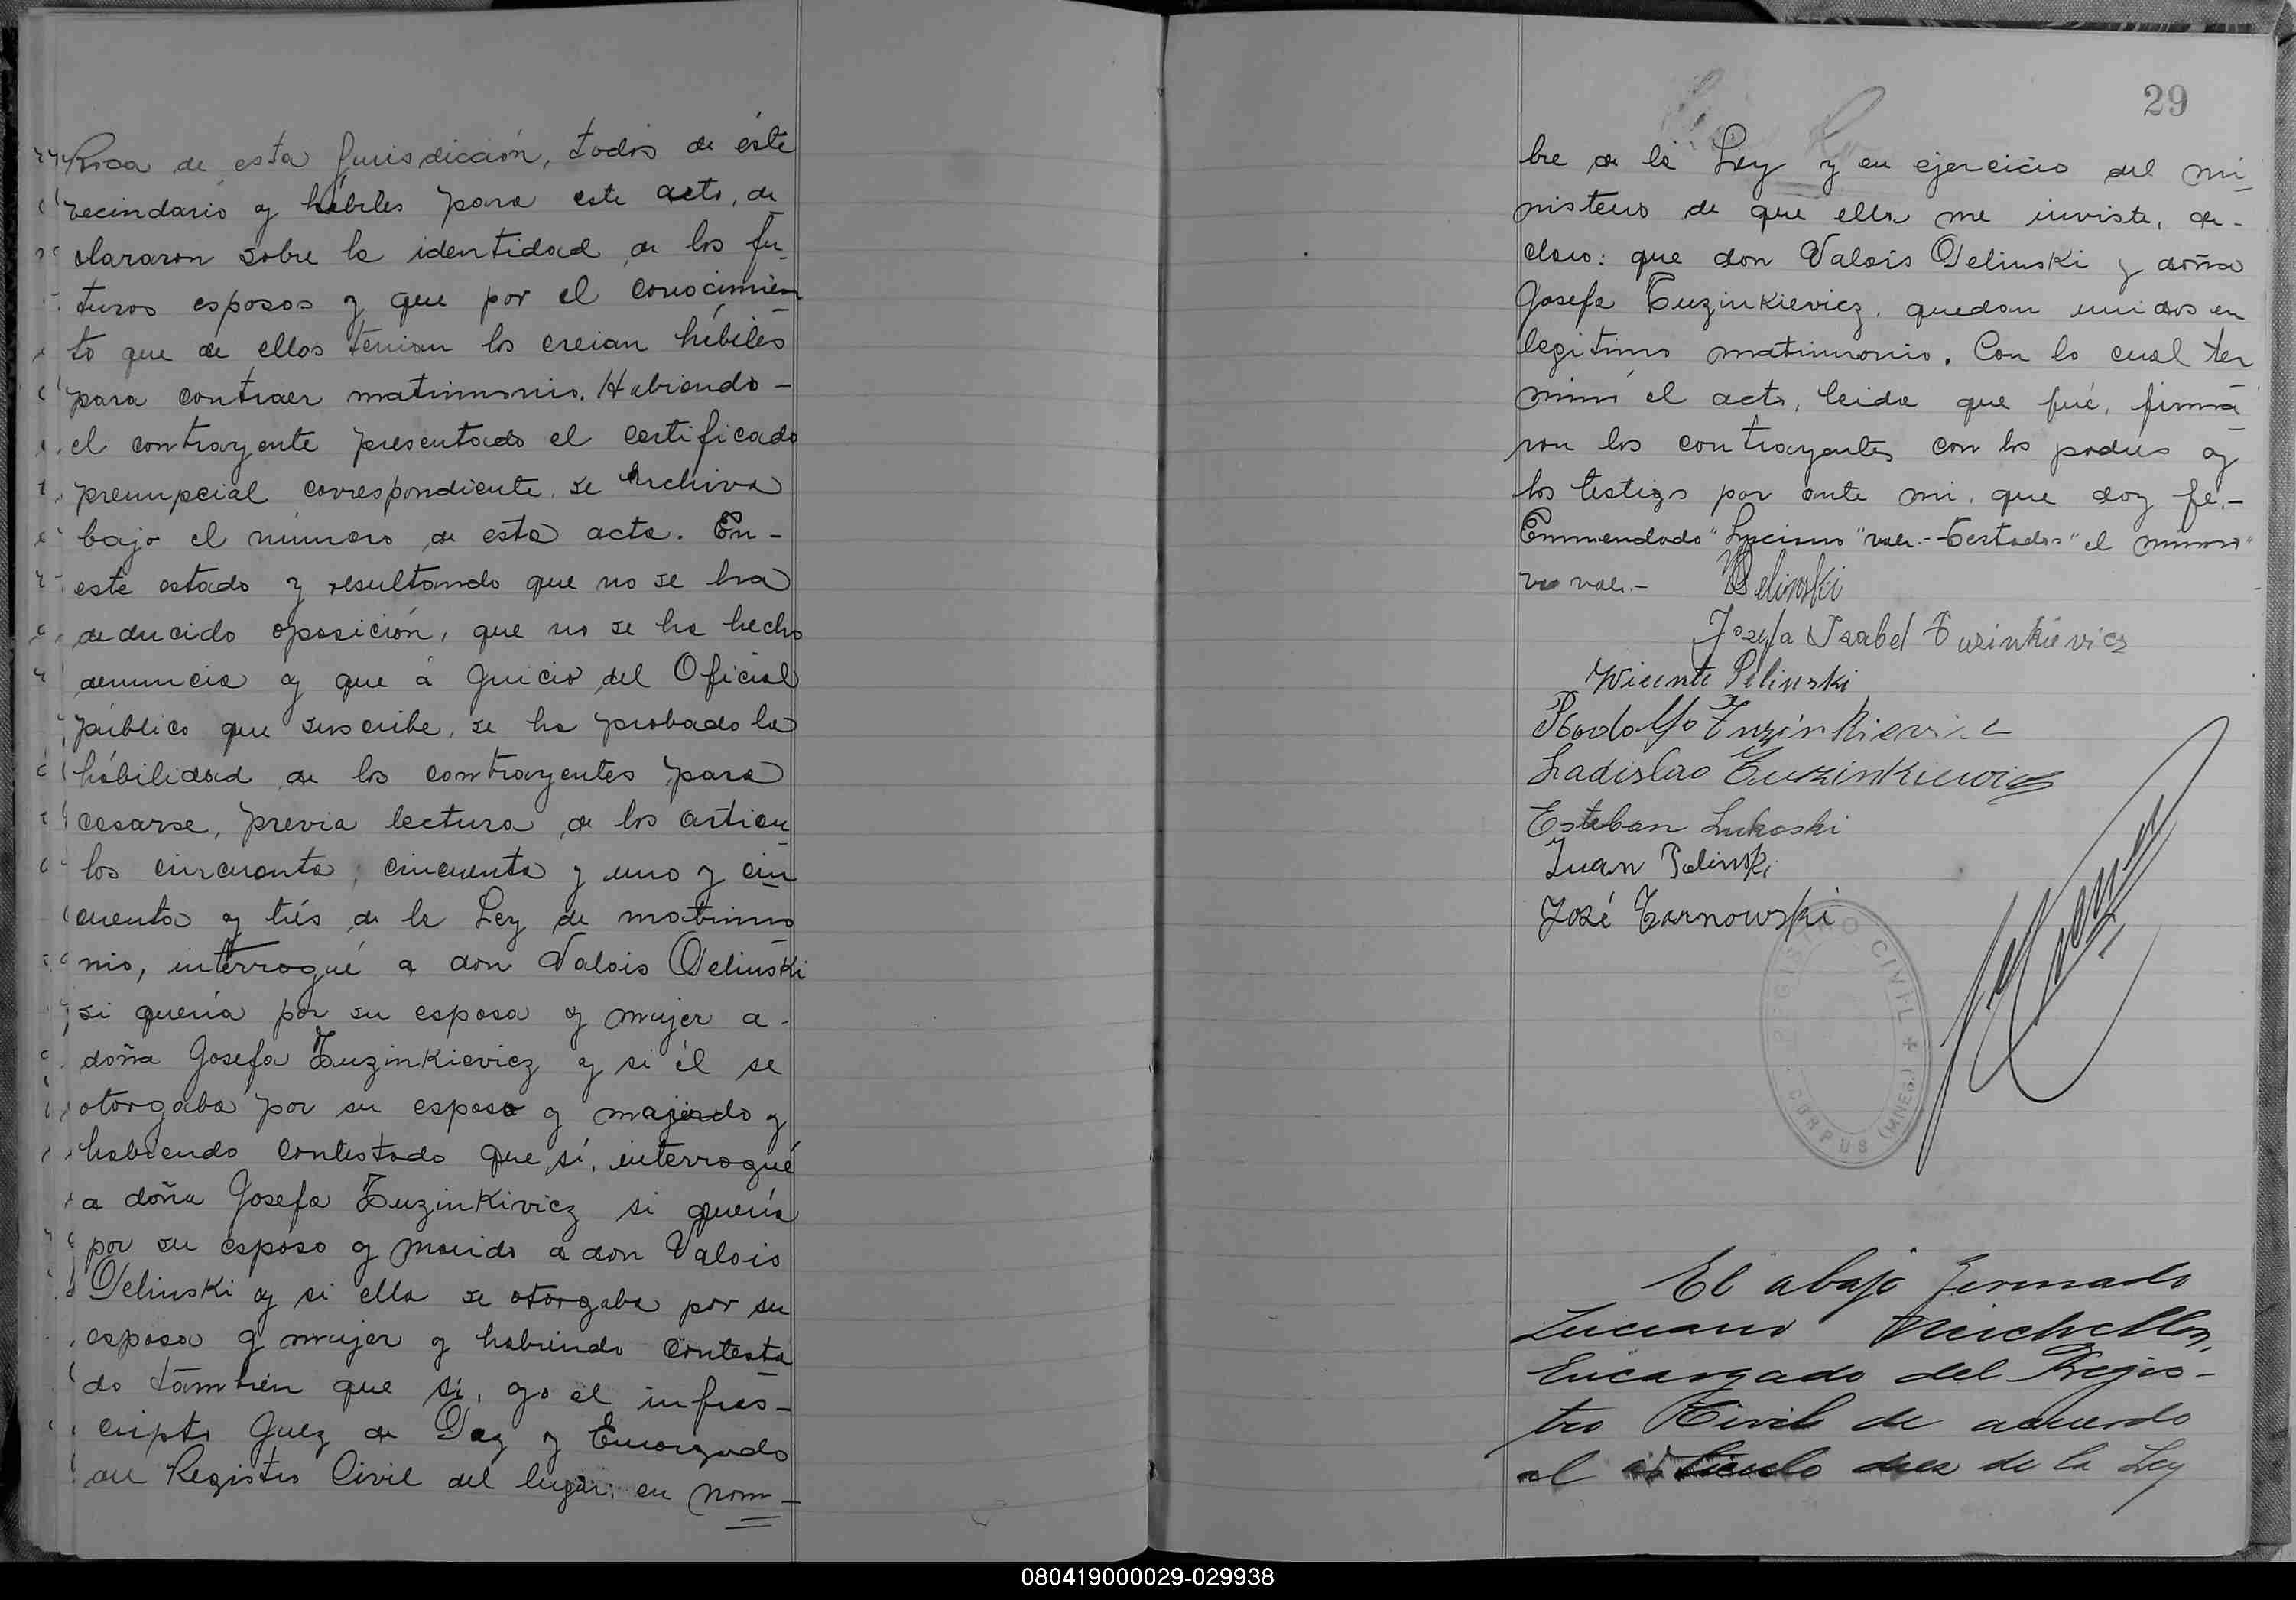 Roca de esta Jurisdicción, todos de éste
vecindario y hábiles para este acto, de
clararon sobre la identidad de los fu-
turos esposos y que por el conocimien
to que de ellos tenian los creian hábiles
para contraer matrimonio. Habiendo -
el contrayente presentado el certificado
prenupcial correspondiente. se Archiva
bajo el número de esta acta. En -
este estado y resultando que no se ha
deducido oposición, que no se ha hecho
denuncia y que á juicio del Oficial
público que suscribe, se ha probado la
habilidad de los contrayentes para
casarse, previa lectura de los artícu
los cincuenta; cincuenta y uno y cin
cuenta y trés de la Ley de matrimo
nio, interrogué a don Valois Pelinski
si quería por su esposa y mujer a -
doña Josefa Tuzinkievicz y si él se
otorgaba por su esposo y marido y
habiendo contestado que sí, interrogué
a doña Josefa Tuzinkivicz si quería
por su esposo y marido a don Valois
Pelinski y si ella se otorgaba por su
esposa y mujer y habiendo contesta
do también que sí, yo el infras-
cripto Juez de Paz y Encargado
del Registro Civil del lugar; en nom-
29
bre de la Ley y en ejercicio del mi-
nisterio de que ella me inviste, de-
claro: que don Valois Pelinski y doña
Josefa Tuzinkievicz, quedan unidos en
legítimo matrimonio. Con lo cual ter
minó el acto, leida que fué, firma
ron los contrayentes con los padres y
los testigos por ante mi, que doy fe.-
Enmendado "Luciano" vale.- Testado "el mismo"
no vale.- Pelinski
Jozefa Isabel Tuzinkievicz
Wicente Pelinski
Rodolfo Tuzinkievicz
Ladislao Tuzinkiewicz
Esteban Lukoski
Juan Pelinski
José Tarnowski
REGISTRO CIVIL
CORPUS (MNES.)
El abajo firmado
Luciano
Encargado del Regis-
tro Civil de acuerdo
al artículo diez de la Ley
080419000029-029938